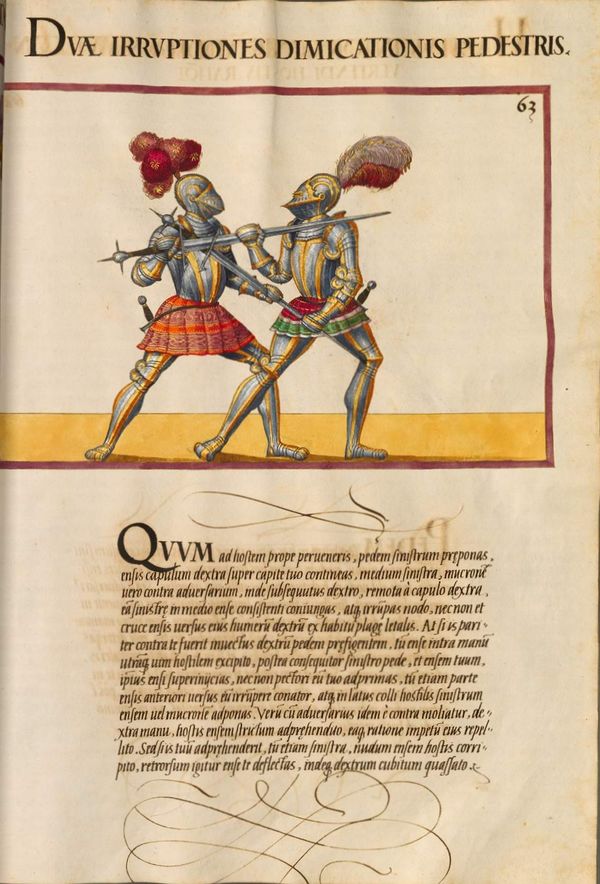 DVÆ IRRVPTIONES DIMICATIONIS PEDESTRIS.
63
QVVM ad hostem prope perueneris, pedem sinistrum preponas,
ensis capulum dextra super capite tuo contineas, medium sinistra, mucronẽ
uero contra aduersarium, inde subsequutus dextro, remota à capulo dextra,
eã sinistre in medio ense consistenti coniungas, atq; irrupas nodo, nec non et
cruce ensis uersus eius humerũ dextrũ ex habitu plage letalis. At si is pari-
ter contra te fuerit inuectus dextrũ pedem prefigentem, tu ense intra manũ
utrãq; uim hostilem excipito, postea consequitor sinistro pede, et ensem tuum,
ipsius ensi superinijcias, nec non pectori eũ tuo adprimas, tu etiam parte
ensis anteriori uersus eũ irrũpere conator, atq; in latus colli hostilis sinistrum
ensem uel mucrone adponas. Verũ cũ aduersarius idem è contra moliatur, de-
xtra manu, hostis ensem strictum adpræhendito, eaq; ratione impetũ eius repel-
lito. Sed si is tuũ adpræhenderit, tu etiam sinistra, nudum ensem hostis corri-
pito, retrorsum igitur ense te deflectas, indeq; dextrum cubitum quassato.